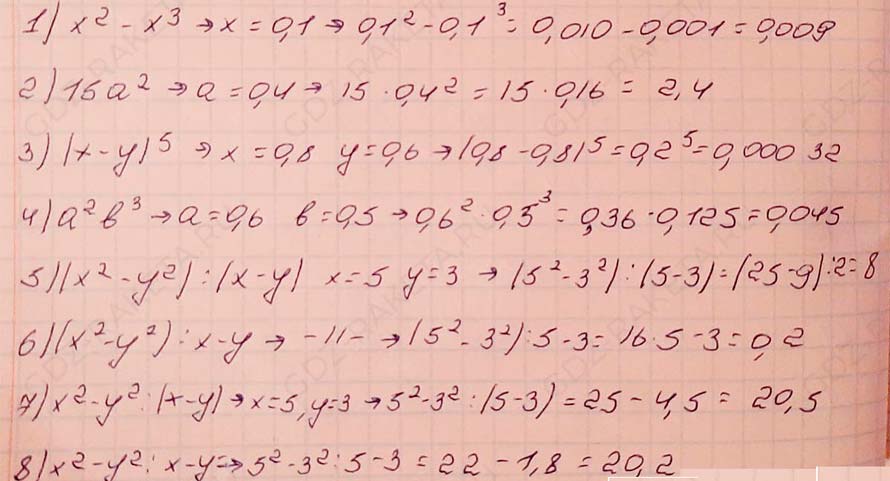 1) x² - x³ → x = 0,1 → 0,1² - 0,1³ = 0,010 - 0,001 = 0,009
2) 15a² → a = 0,4 → 15 · 0,4² = 15 · 0,16 = 2,4
3) (x-y)⁵ → x = 0,8 y = 0,6 → (0,8 - 0,8)⁵ = 0,2⁵ = 0,000 32
4) a²b³ → a = 0,6 b = 0,5 → 0,6² · 0,5³ = 0,36 · 0,125 = 0,045
5) (x² - y²) : (x-y) x = 5 y = 3 → (5² - 3²) : (5-3) = (25-9) : 2 = 8
6) (x² - y²) : x - y → -11- → (5² - 3²) : 5 - 3 = 16 : 5 - 3 = 0,2
7) x² - y² : (x-y) → x = 5, y = 3 → 5² - 3² : (5-3) = 25 - 4,5 = 20,5
8) x² - y² : x - y = → 5² - 3² : 5 - 3 = 22 - 1,8 = 20,2
GDZ-RAKETA.RU